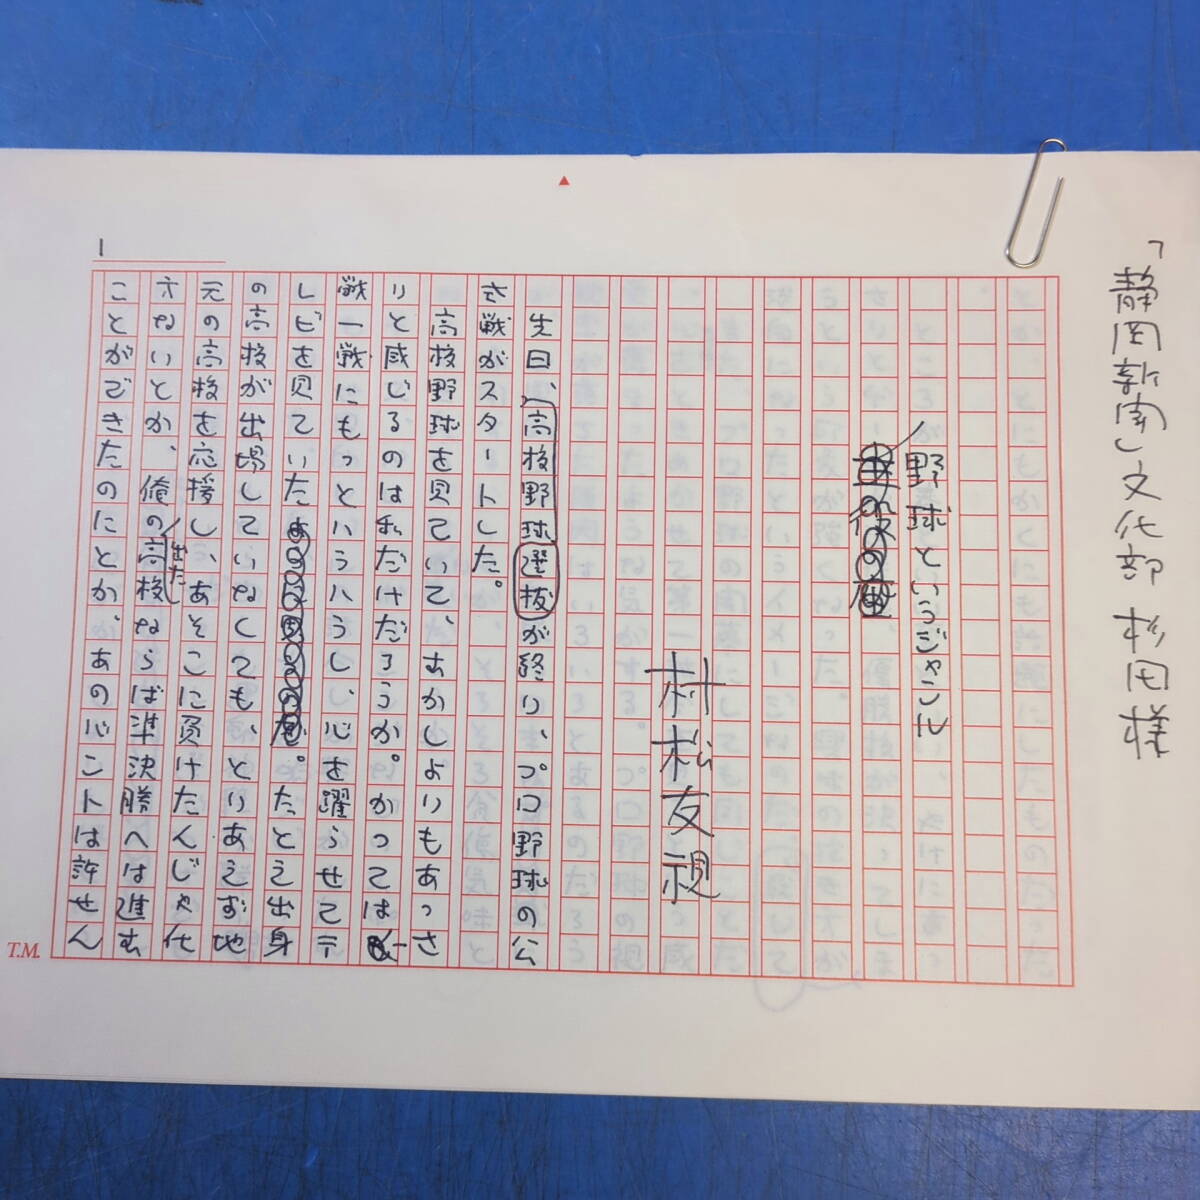 「静岡新聞」文化部 杉田様
野球というジャンル
村松友視
先日、高校野球選抜が終り、プロ野球の公
式戦がスタートした。
高校野球を見ていて、むかしよりもあっさ
りと感じるのは私だけだろうか。かつては一
戦一戦にもっとハラハラし、心を躍らせてテ
レビを見ていた。たとえ出身
の高校が出場していなくても、とりあえず地
元の高校を応援し、あそこに負けたんじゃ仕
方ないとか、俺の出た高校ならば準決勝へは進む
ことができたのにとか、あのバントは許せん
1
T.M.